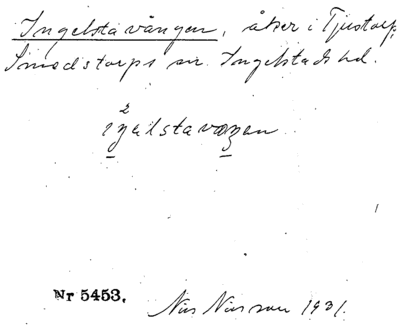 Ingelstavången, åker i Tjustorp,
Simrstorps sn. Ingelstads hd.
2
Nr 5453.
Nils Nilsson 1931.